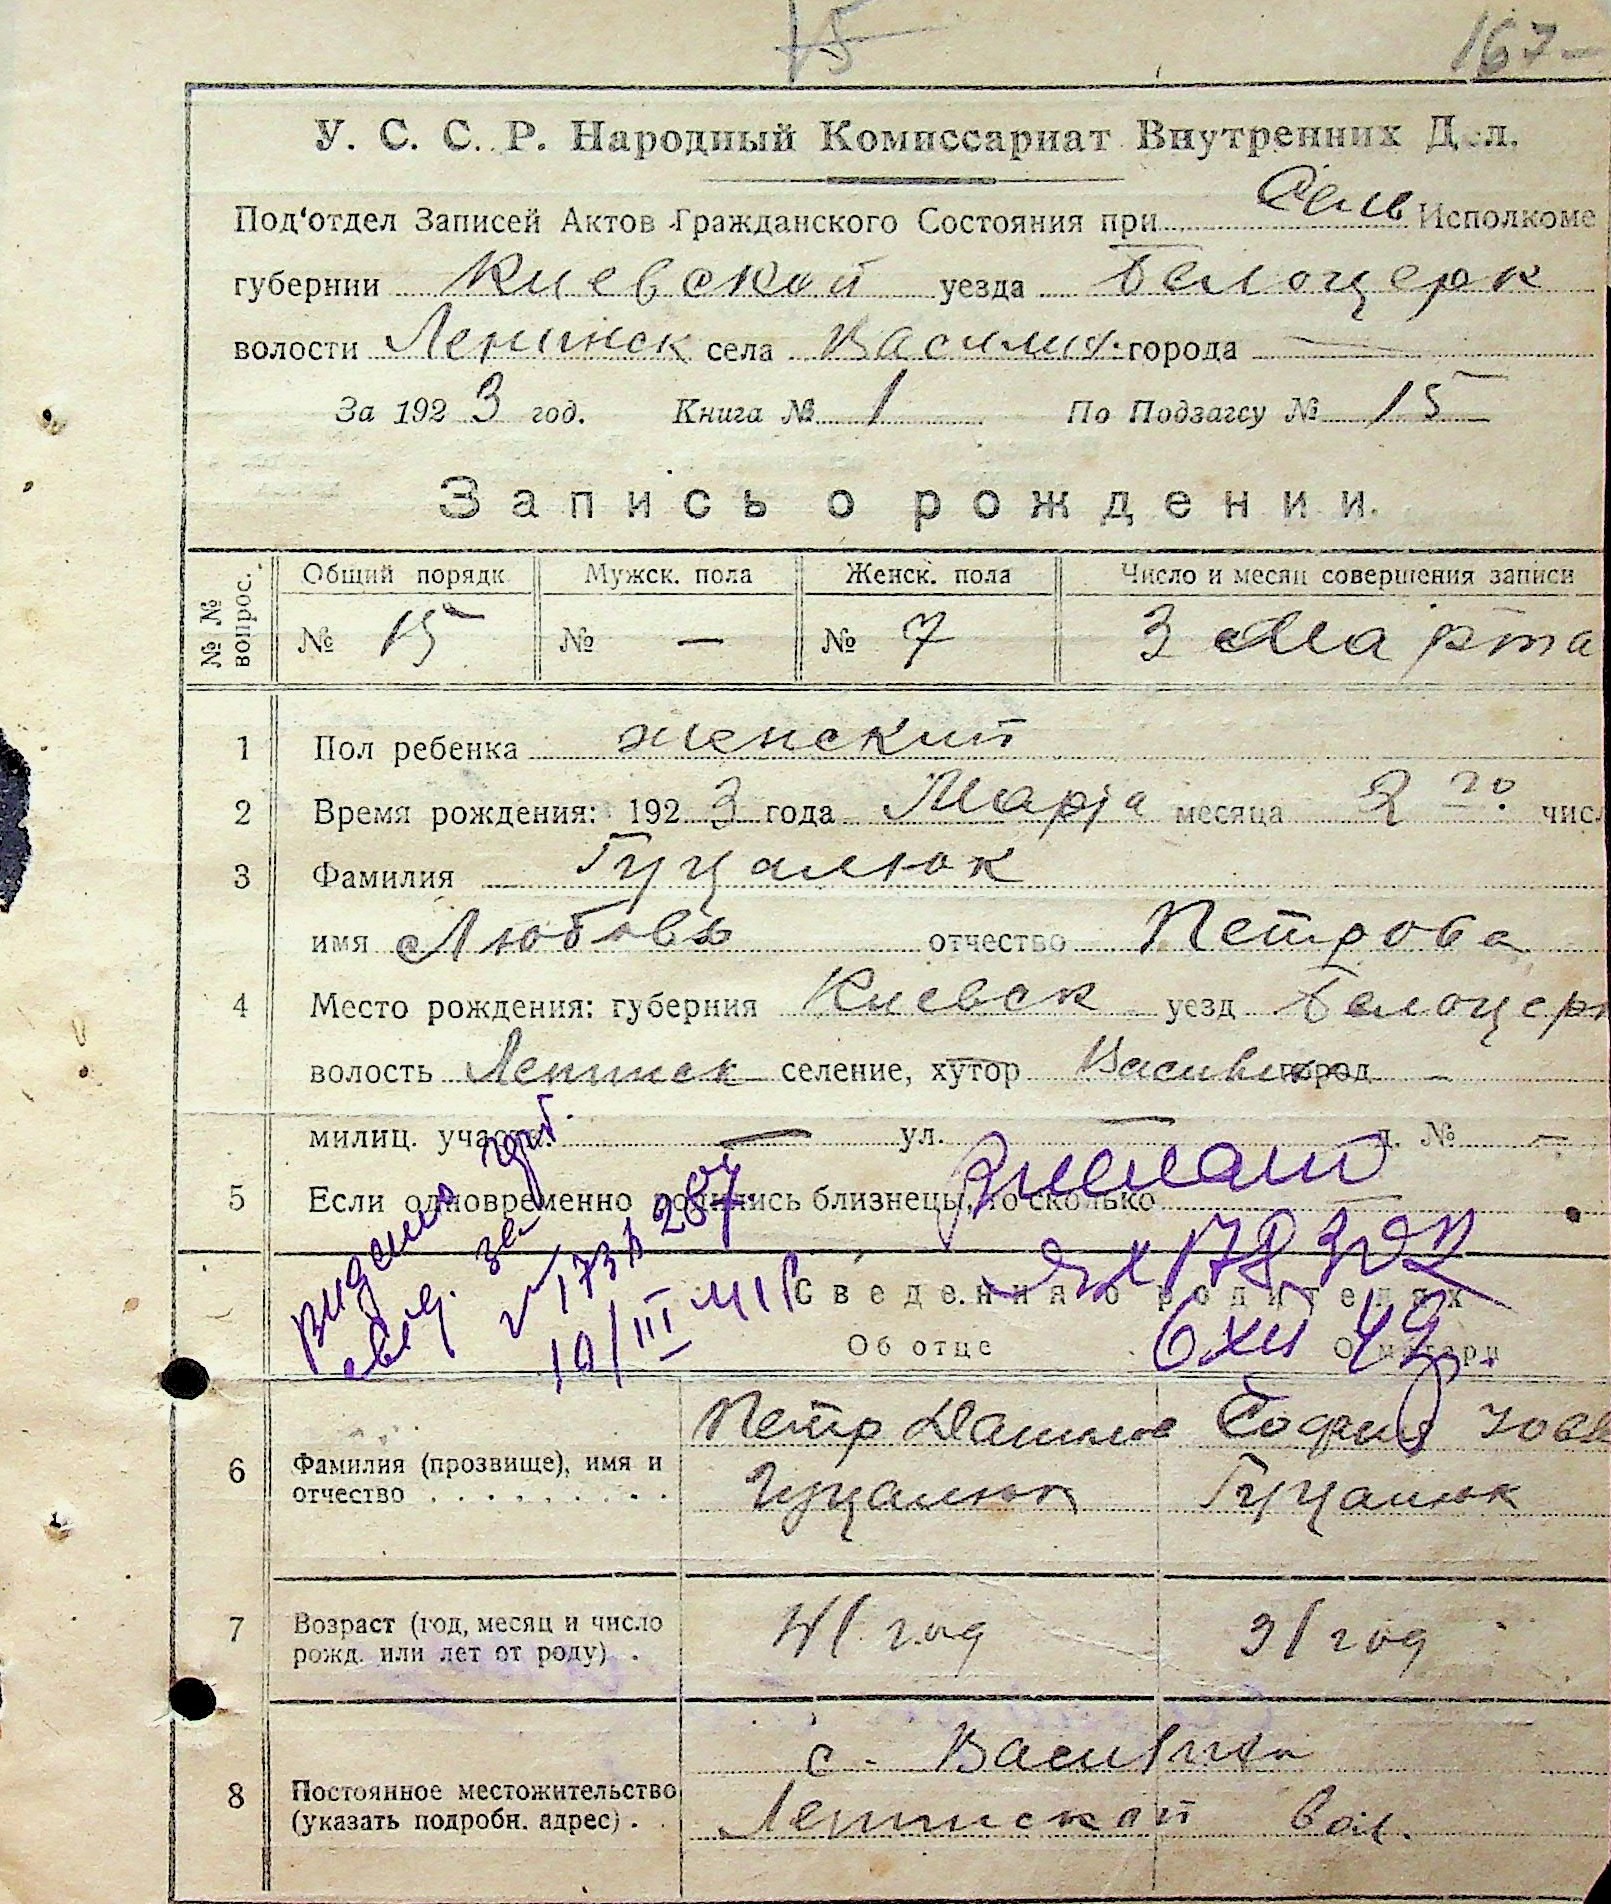 15 167-
У. С. С. Р. Народный Комиссариат Внутренних Дел.
Под'отдел Записей Актов Гражданского Состояния при Сель Исполкоме
губернии Киевской уезда Белоцерк
волости Ленинск села Василих. города —
За 1923 год. Книга № 1 По Подзагсу № 15
Запись о рождении.
№ № вопрос. Общий порядк Мужск. пола Женск. пола Число и месяц совершения записи
№ 15 № — № 7 3 Марта
1 Пол ребенка женский
2 Время рождения: 1923 года Марта месяца 2го числ
3 Фамилия Гуцалюк
имя Любовь отчество Петрова
4 Место рождения: губерния Киевск уезд Белоцерк
волость Ленинск селение, хутор город —
милиц. участк. — ул. — д. № —
5 Если одновременно родились близнецы, то сколько —
видано
свид. за
№ 173
10/III
178
6 XII 49
Сведения о родителях
Об отце О матери
6 Фамилия (прозвище), имя и Петр Данилов София
отчество Гуцалюк Гуцалюк
7 Возраст (год, месяц и число 41 год 31 год
рожд. или лет от роду)
8 Постоянное местожительство с.
(указать подробн. адрес) Ленинской вол.